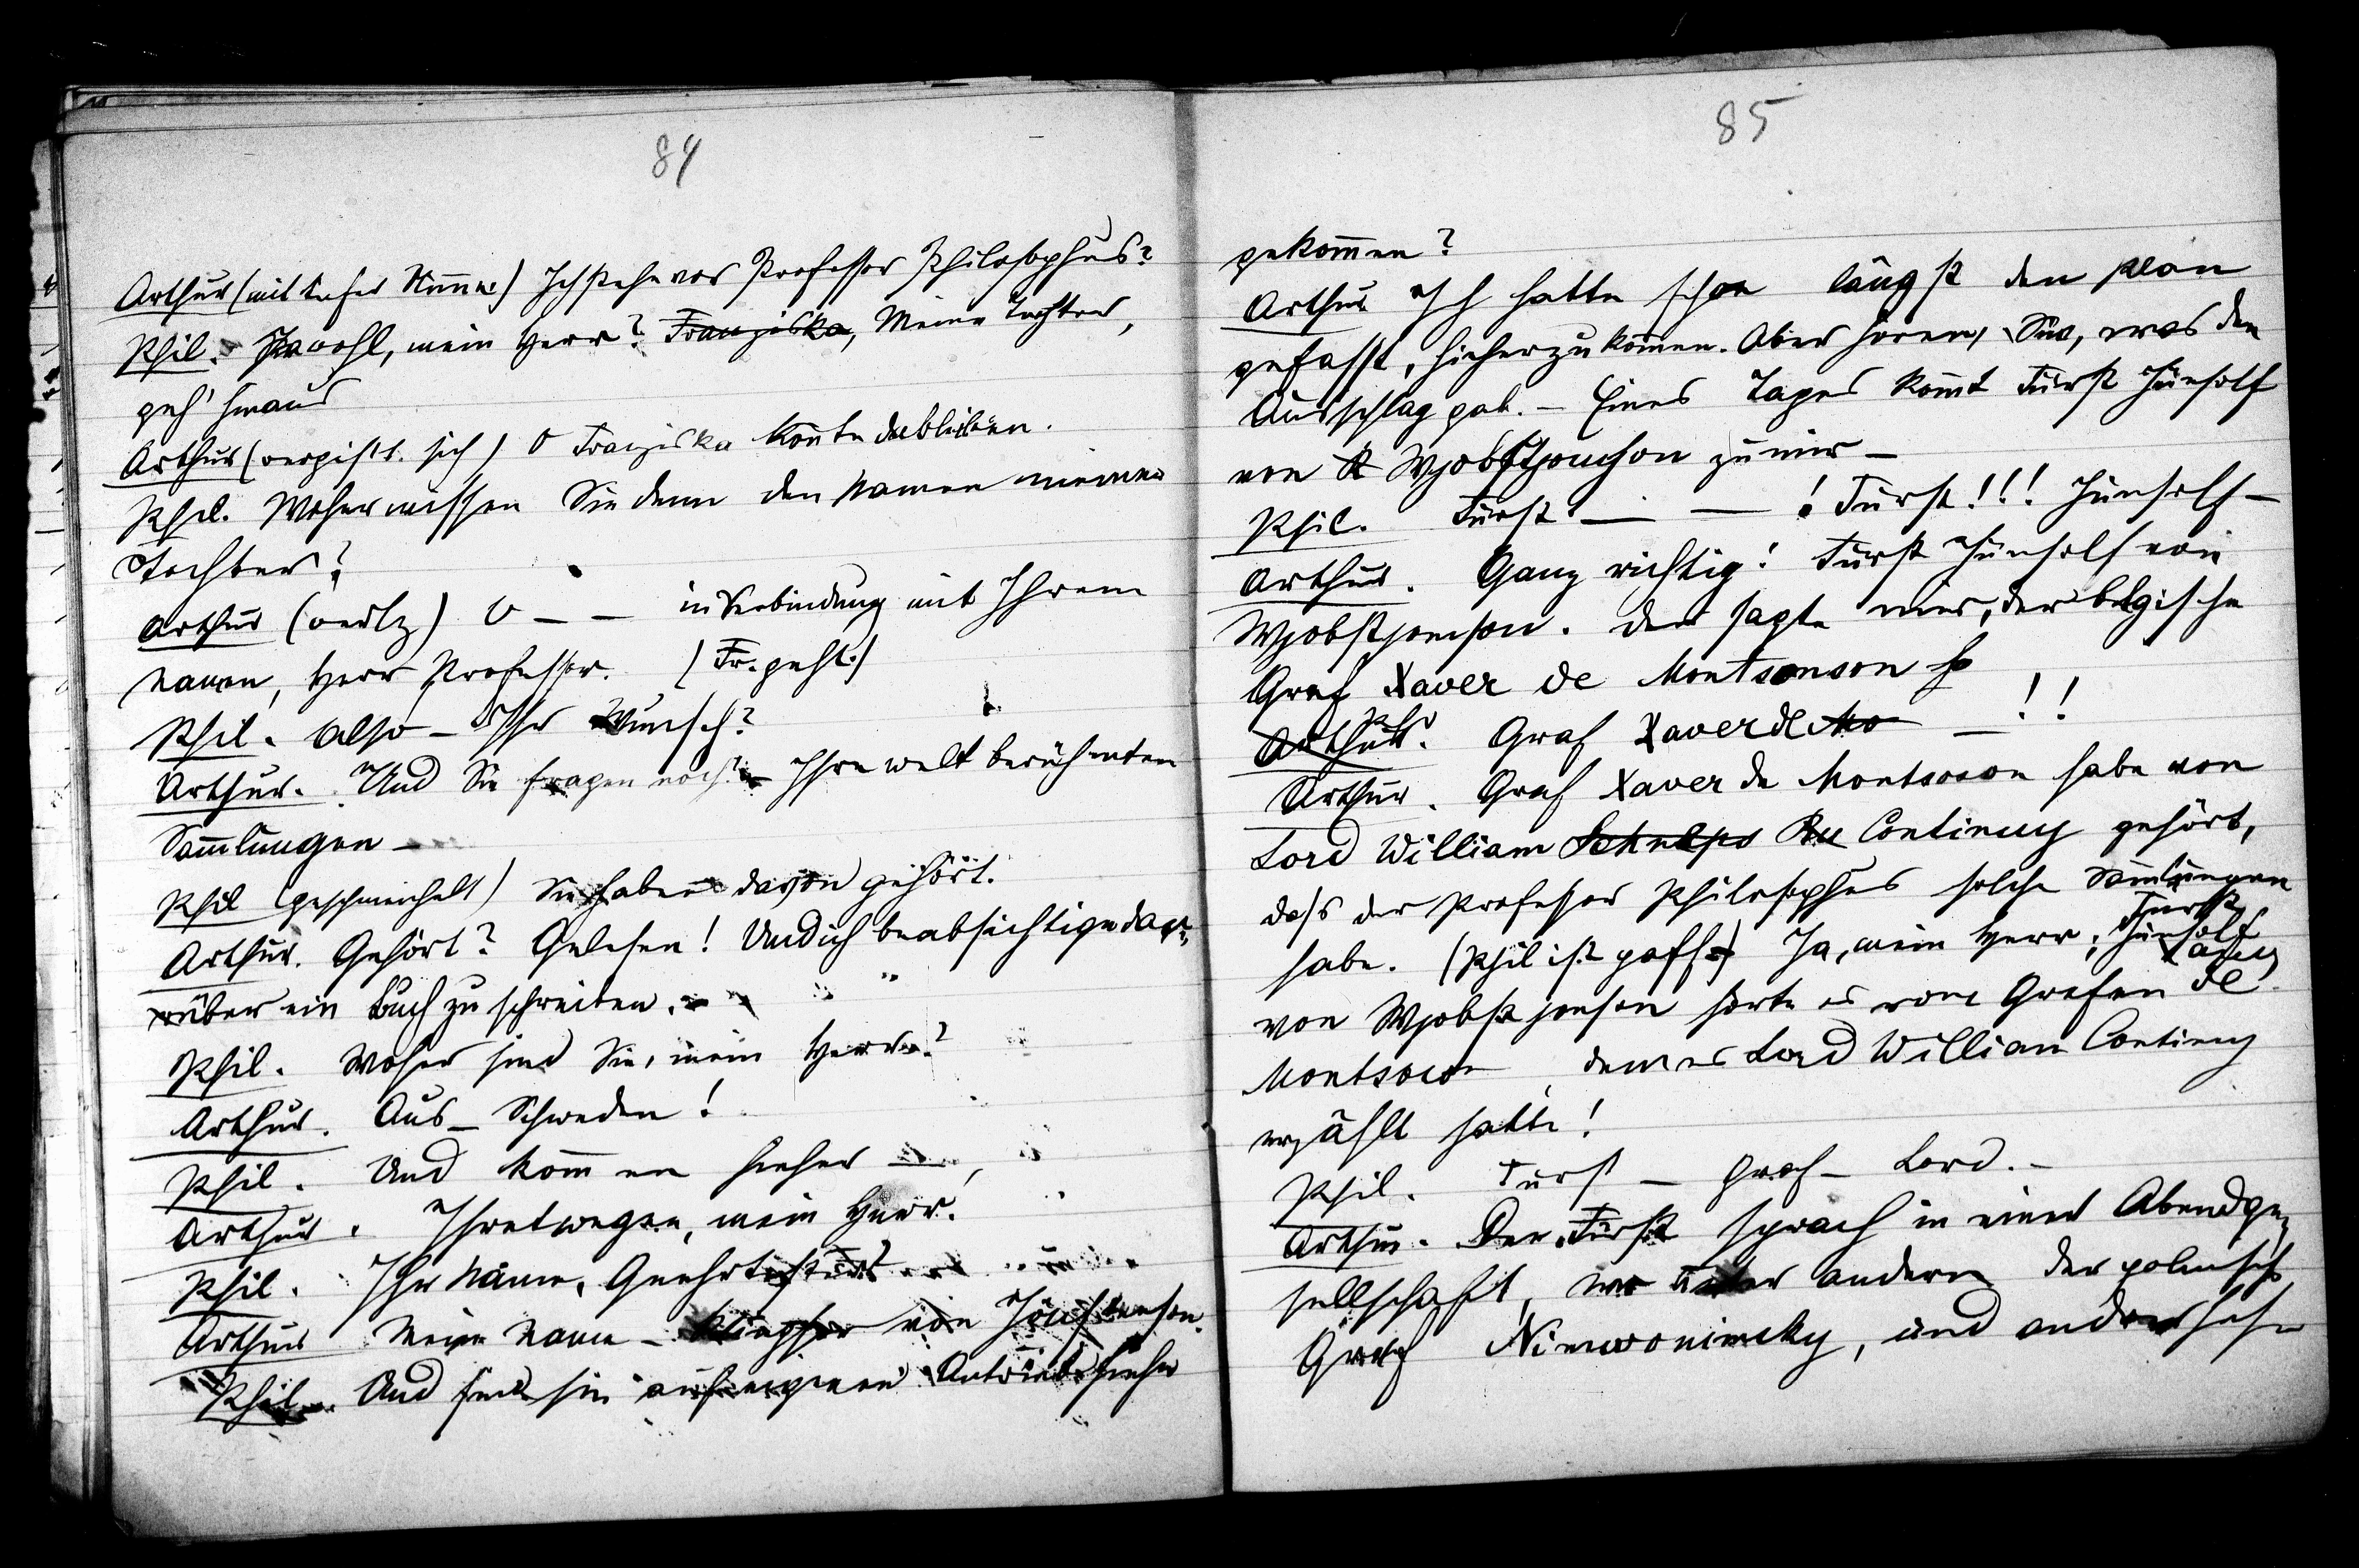 84
Arthur (mit tiefer Stimme) Ich stehe vor Professor Philosophus?
Phil. Jawohl, mein Herr? Franziska, Meine Tochter,
geh' hinaus
Arthur (vergißt sich) O Franziska könnte dableiben.
Phil. Woher wissen Sie denn den Namen meiner
Tochter?
Arthur O – – in Verbindung mit Ihrem
Namen, Herr Professor. (Fr. geht.)
Phil. Also – Ihr Wunsch?
Arthur. Und Sie fragen noch? Ihre weltberühmten
Sam̄lungen –
Phil (geschmeichelt) Sie haben davon gehört.
Arthur. Gehört? Gelesen! Und ich beabsichtige dar-
rüber ein Buch zu schreiben.
Phil. Woher sind Sie, mein Herr?
Arthur. Aus – Schweden!
Phil. Und kom̄en hieher –
Arthur. Ihretwegen, mein Herr!
Phil. Ihr Name, Geehrtester?
Arthur Mein Name – von
Phil. Und sind sie aus eigenem Antriebe hieher
85
gekom̄en?
Arthur Ich hatte schon längst den Plan
gefasst, hieherzukom̄en. Aber hören Sie, was den
Ausschlag gab. – Eines Tages kom̄t Fürst Hünholf
von Wjobstjonson zu mir –
Phil. Fürst – – ! Fürst!!! Hünholf –
Arthur. Ganz richtig: Fürst Hünholf von
Wjobstjonson. Der sagte mir, der belgische
Graf Xaver de Montsonson h
Arthur. Phil Graf Xaver de Mo – !!
Arthur. Graf Xaver de Montsoson habe von
Lord William Schnlps Ru Continuy gehört,
dass der Professor Philosophus solche Sam̄lungen
habe. (Phil ist paff) Ja, mein Herr; Fürst Hünholf
von Wjobstjonson hörte es vom Grafen Xaver de
Montsoson, dem es Lord William Continuy
erzählt hatte!
Phil. Fürst – Graf – Lord. –
Arthur. Der Fürst sprach in einer Abendge-
sellschaft, wo unter andern der polnische
Graf Niewonimsky, und andere hohe